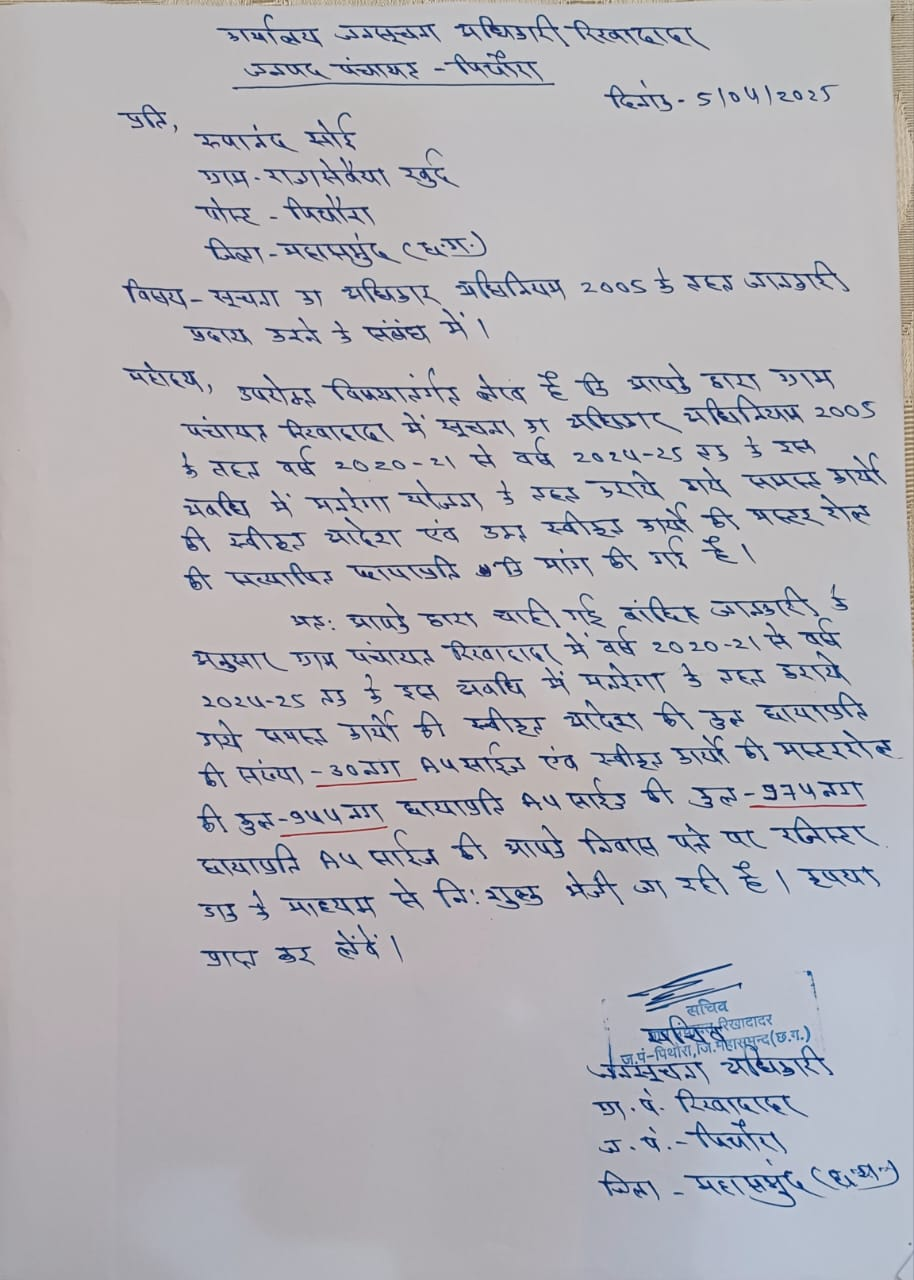 कार्यालय जनसूचना अधिकारी रिखादादर
जनपद पंचायत - पिथौरा
दिनांक - 5/04/2025
प्रति,
रूपानंद सोई
ग्राम - राजासेवैया खुर्द
पोस्ट - पिथौरा
जिला - महासमुंद (छ.ग.)
विषय - सूचना का अधिकार अधिनियम 2005 के तहत जानकारी
प्रदाय करने के संबंध में।
महोदय,
उपरोक्त विषयांतर्गत लेख है कि आपके द्वारा ग्राम
पंचायत रिखादादर में सूचना का अधिकार अधिनियम 2005
के तहत वर्ष 2020-21 से वर्ष 2024-25 तक के इस
अवधि में मनरेगा योजना के तहत कराये गये समस्त कार्यो
की स्वीकृत आदेश एवं उक्त स्वीकृत कार्यो की मस्टर रोल
की सत्यापित छायाप्रति कि मांग की गई है।
अतः आपके द्वारा चाही गई वांछित जानकारी के
अनुसार ग्राम पंचायत रिखादादर में वर्ष 2020-21 से वर्ष
2024-25 तक के इस अवधि में मनरेगा के तहत कराये
गये समस्त कार्यो की स्वीकृत आदेश की कुल छायाप्रति
की संख्या - 30 नग A4 साईज एवं स्वीकृत कार्यो की मस्टररोल
की कुल - 944 नग छायाप्रति A4 साईज की कुल - 974 नग
छायाप्रति A4 साईज की आपके निवास पते पर रजिस्टर
डाक के माध्यम से नि:शुल्क भेजी जा रही है। कृपया
प्राप्त कर लेंवें।
सचिव
रिखादादर
ज.पं-पिथौरा, जि.महासमुन्द (छ.ग.)
सचिव
जनसूचना अधिकारी
ग्रा. पं. रिखादादर
ज. पं. - पिथौरा
जिला - महासमुंद (छ.ग.)